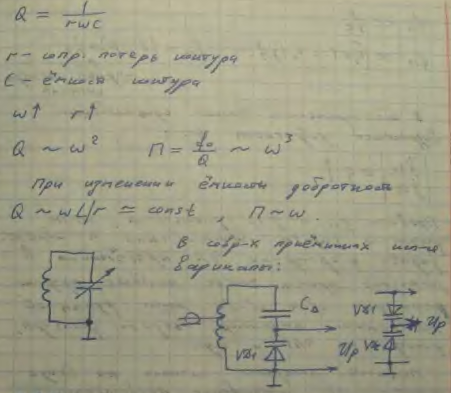 Q = 1/rωc
r – сопр. потерь контура
C – ёмкость контура
ω↑ r↑
Q ~ ω² П = f₀/Q ~ ω³
При изменении ёмкости добротность
Q ~ ωL/r ≅ const, П ~ ω.
В совр-х приёмниках исп-ся
варикапы:
C_Δ
VD1
Uр
VD1
VD
Uр